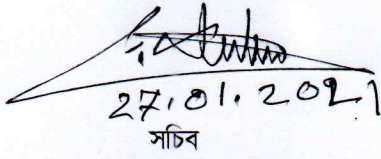 27.01.2021
সচিব